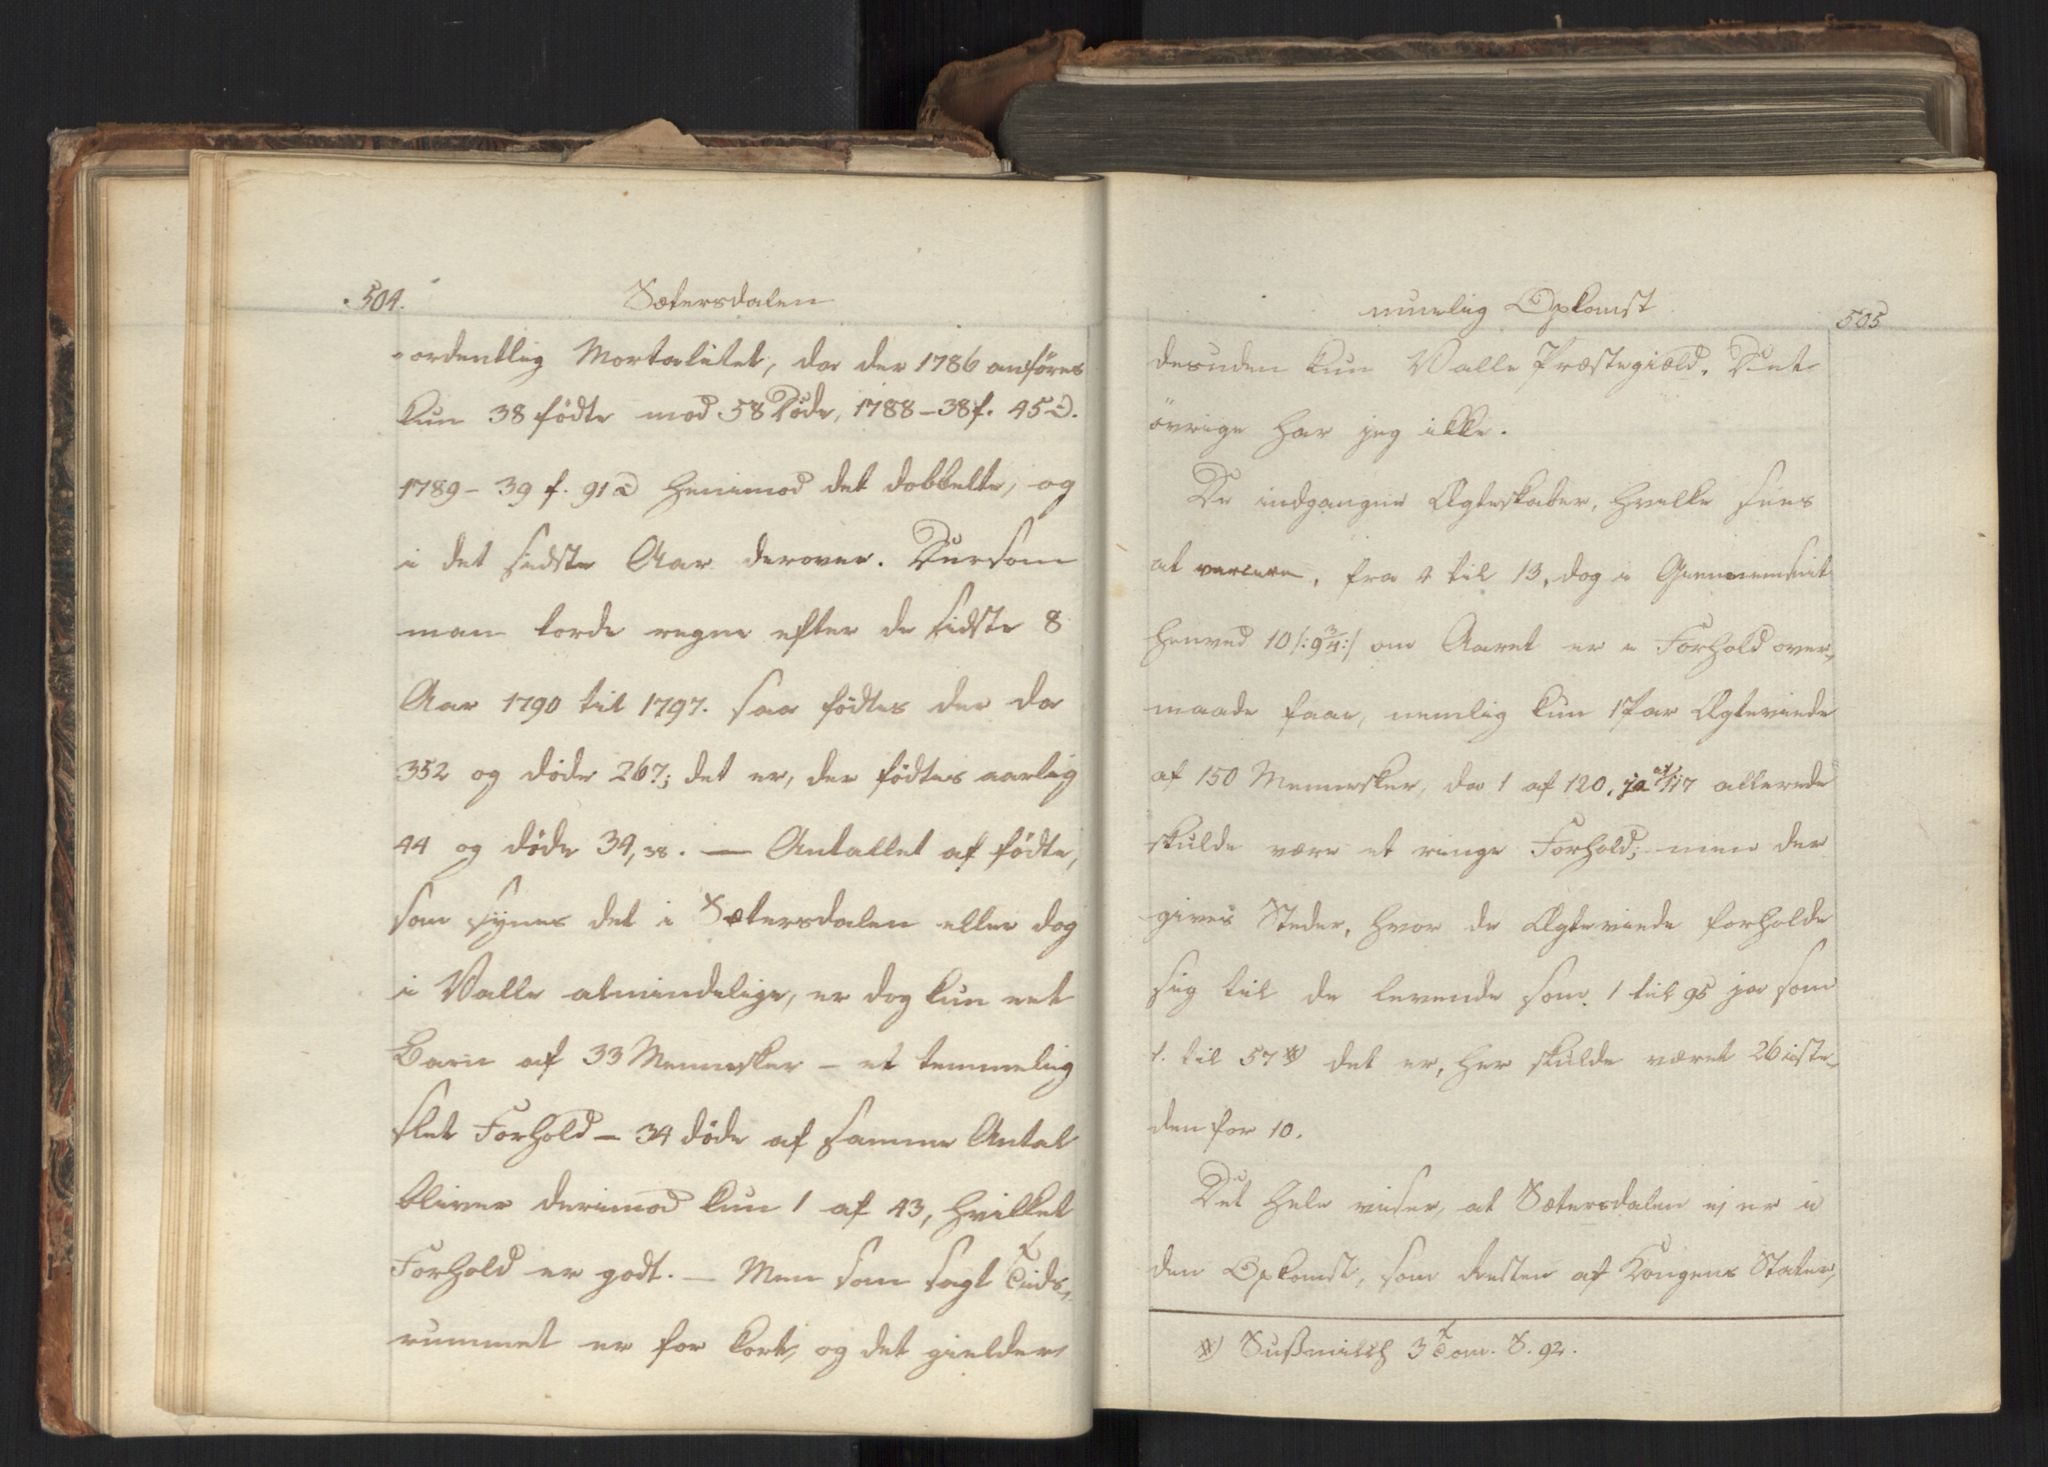 504.
Sætersdalen
-ordentlig Mortalitet, da der 1786 anføres
kun 38 fødte mod 58 Døde, 1788 – 38 f. 45 D.
1789 – 39 f. 91 D henimod det dobbelte, og
i det sidste Aar derover. Dersom
man torde regne efter de sidste 8
Aar 1790 til 1797. saa fødtes der da
352 og døde 267; det er, der fødtes aarlig
44 og døde 34,38. — Antallet af fødte,
som synes det i Sætersdalen eller dog
i Valle almindelige, er dog kun eet
Barn af 33 Mennesker – et temmelig
slet Forhold – 34 døde af samme Antal
bliver derimod kun 1 af 43, hvilket
Forhold er godt. – Men som sagt Tids-
rummet er for kort, og det gielder
505
Opkomst
desuden kun Valle Præstegiæld. Det
øvrige har jeg ikke.
De indgangne Ægteskaber, hvilke sees
at variere, fra 4 til 13, dog i Giennemsnit
henved 10 /: 9 3/4 :/ om Aaret er i Forhold over-
maade faae, nemlig kun 1 Par Ægteviede
af 150 Mennesker, da 1 af 120, ja af 117 allerede
skulde være et ringe Forhold; men der
gives Steder, hvor de Ægteviede forholde
sig til de levende som 1 til 95 ja som
1. til 57 *) det er, her skulde været 26 iste-
den for 10.
Det Hele viser, at Sætersdalen ej er i
den Opkomst, som Resten af Kongens Stater,
*) Sußmilch 3 Tom. S. 92.